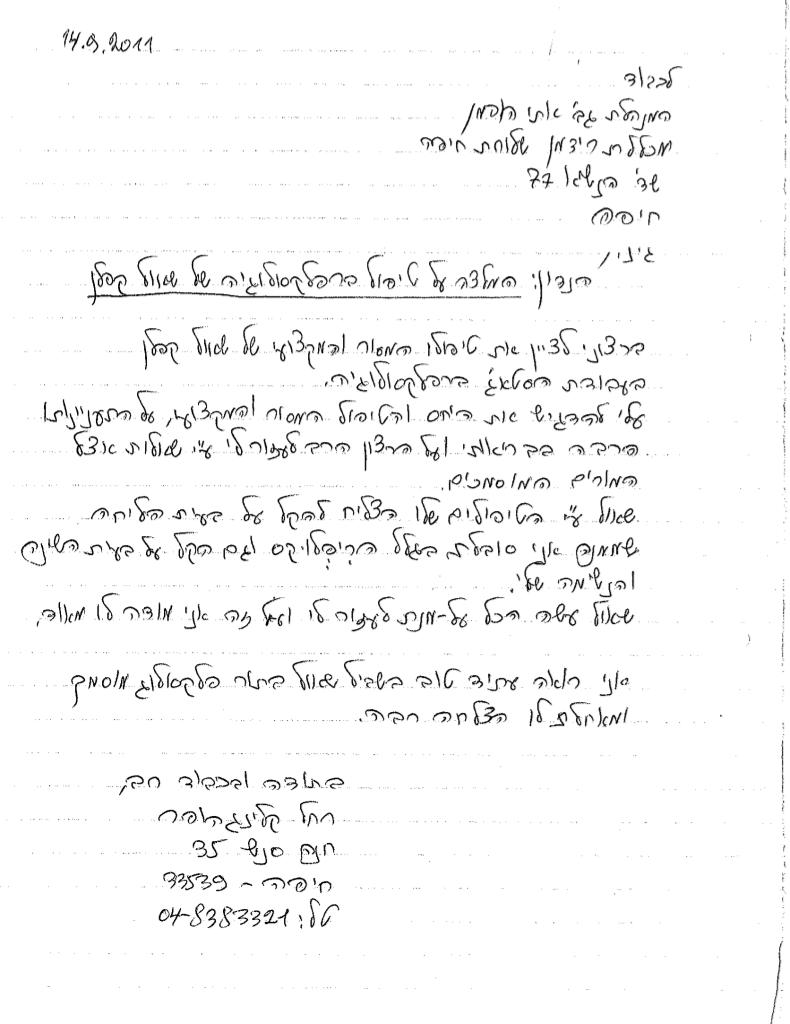 14.9.2011
לכבוד
המנהלת גב' אתי הופמן
מכללת רידמן שלוחת חיפה
שד' הנשיא 77
חיפה
ג.נ.,
הנדון: המלצה על טיפול ברפלקסולוגיה של שאול קפלן
ברצוני לציין את טיפולו המסור והמקצועי של שאול קפלן
בעבודת הסטאג' ברפלקסולוגיה.
עלי להדגיש את היחס והטיפול המסור והמקצועי, על התעניינותו
הרבה בבריאותי ועל הרצון הרב לעזור לי ע"י שאלות אצל
המורים המוסמכים.
שאול ע"י הטיפולים שלו הצליח להקל על בעית הליחה
שממנה אני סובלת בגלל הריפלוקס וגם הקל על בעית השינה
והנשימה שלי.
שאול עשה הכל על-מנת לעזור לי ועל זה אני מודה לו מאוד.
אני רואה עתיד טוב בשביל שאול בתור פלקסולוג מוסמך
ומאחלת לו הצלחה רבה.
בתודה ובכבוד רב,
רחל קלינגהופר
חנה סנש 35
חיפה - 33539
טל: 04-8383321